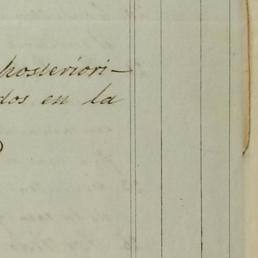 posteriori-
dos en la